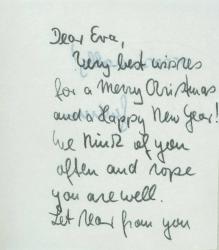 Dear Eva,
Very best wishes
for a Merry Christmas
and a Happy New Year!
We think of you
often and hope
you are well.
Let hear from you